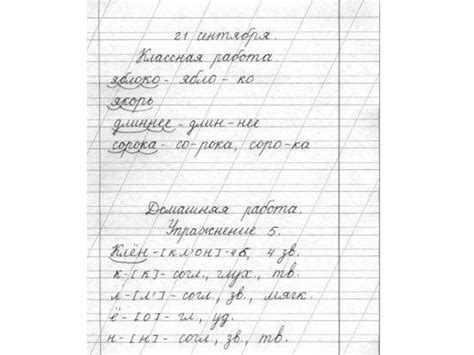 21 сентября.
Классная работа
яблоко - ябло - ко
якорь
длиннее - длин - нее
сорока - со-рока, соро-ка
Домашняя работа.
Упражнение 5.
Клён - [кл'он] - 4б, 4 зв.
к - [к] - согл., глух., тв.
л - [л'] - согл., зв., мягк.
ё - [о] - гл., уд.
н - [н] - согл., зв., тв.